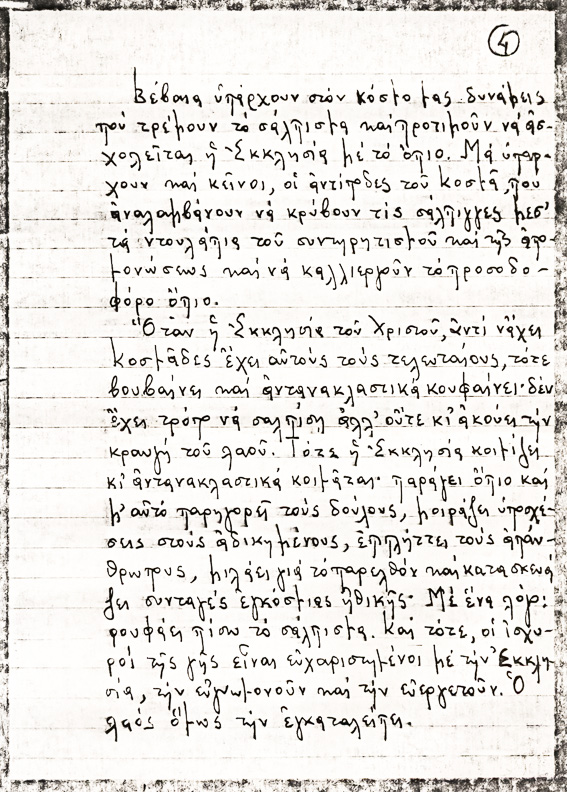 4
Βέβαια ὑπάρχουν στόν κόσμο μας δυνάμεις
πού τρέμουν τό σάλπισμα καί προτιμοῦν νά ἀσ-
χολεῖται ἡ Ἐκκλησία μέ τό ὄπιο. Μά ὑπάρ-
χουν καί κεῖνοι, οἱ ἀντίποδες τοῦ Κοσμᾶ, που
ἀναλαμβάνουν νά κρύβουν τίς σάλπιγγες μέσ'
τά ντουλάπια τοῦ συντηρητισμοῦ καί τῆς ἀπο-
μονώσεως καί νά καλλιεργοῦν τό προσοδο-
φόρο ὄπιο.
Ὅταν ἡ Ἐκκλησία τοῦ Χριστοῦ, ἀντί νἄχει
Κοσμᾶδες ἔχει αὐτούς τούς τελευταίους, τότε
βουβαίνει καί ἀντανακλαστικά κουφαίνει· δέν
ἔχει τρόπο νά σαλπίση ἀλλ' οὔτε κι' ἀκούει τήν
κραυγή τοῦ λαοῦ. Τότε ἡ Ἐκκλησία κοιμίζει
κι' ἀντανακλαστικά κοιμᾶται· παράγει ὄπιο καί
μ' αὐτό παρηγορεῖ τούς δούλους, μοιράζει ὑποσχέ-
σεις στούς ἀδικημένους, ἐπιπλήττει τούς ἀπάν-
θρωπους, μιλάει γιά τό παρελθόν καί κατασκευά
ζει συνταγές ἐγκόσμιας ἠθικῆς· Μέ ἕνα λόγο:
ρουφάει πίσω τό σάλπισμα. Καί τότε, οἱ ἰσχυ-
ροί τῆς γῆς εἶναι εὐχαριστημένοι μέ τήν Ἐκκλη
σία, τήν εὐγνωμονοῦν καί τήν εὐεργετοῦν. Ὁ
λαός ὅμως τήν ἐγκαταλείπει.